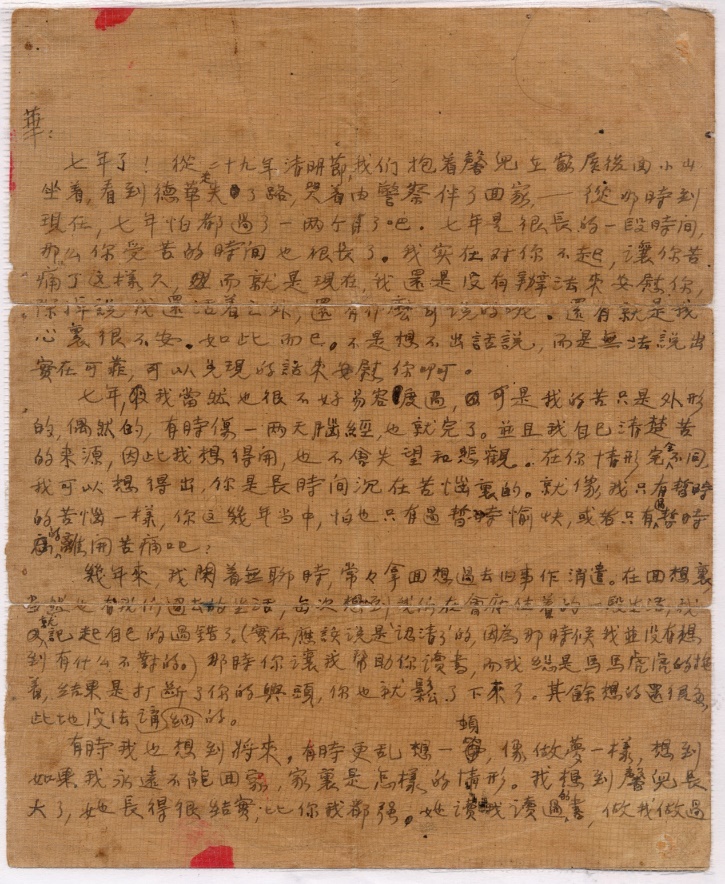 華：
七年了！從二十九年清明節我们抱着馨兒在家屋後面小山
坐着，看到德華走失了路，哭着由警察伴了回家，——從那時到
現在，七年怕都過了一两个月了吧。七年是很長的一段時间，
那么你受苦的時间也很長了。我实在对你不起，讓你苦
痛了這樣久，然而就是現在，我還是没有辦法來安慰你，
除掉說我還活着之外，還有什麼可说的呢。還有就是我
心裏很不安。如此而已。不是想不出話說，而是無法說出
實在可靠，可以兑現的話來安慰你啊。
七年，我當然也很不好易容度過，可是我的苦只是外形
的，偶然的，有時傷一两天腦經，也就完了。並且我自己清楚苦
的來源，因此我想得開，也不會失望和悲觀。在你情形完全不同
我可以想得出，你是長時间沉在苦惱裏的。就像我只有過暫時
的苦惱一樣，你这幾年当中，怕也只有過暫時愉快，或者只有暫時
的離開苦痛吧？
幾年來，我閑着無聊時，常々拿回想過去旧事作消遣。在回想裏
當然也有我们過去的生活，每次想到我们在會府住着的一段生活，我
就記起自己的過錯了。（實在應該说是“認清了”的，因為那時候我並没有想
到有什么不對的。）那時你讓我幫助你讀書，而我總是馬馬虎虎的拖
着，結果是打斷了你的興頭，你也就鬆了下來了。其餘想的還很多，
此地没法 的。
有時我也想到將來，有時更乱想一頓，像做夢一樣，想到
如果我永遠不能回家，家裏是怎樣的情形。我想到馨兒長
大了，她長得很結實，比你我都强。她讀我讀過的書，做我做過